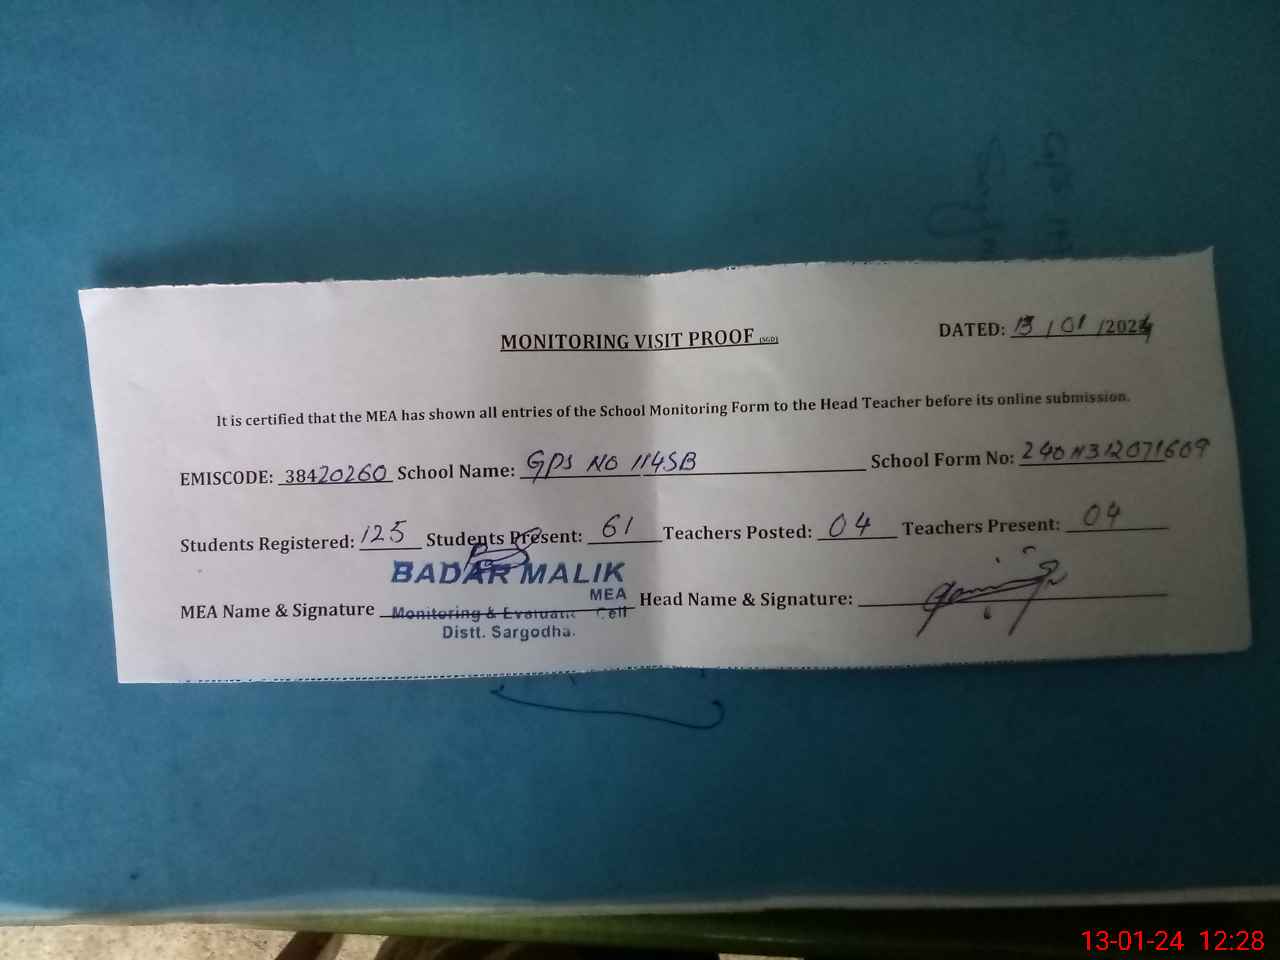 MONITORING VISIT PROOF (SGD)
DATED: 13 / 01 /2024
It is certified that the MEA has shown all entries of the School Monitoring Form to the Head Teacher before its online submission.
EMISCODE: 38420260 School Name: GPS NO 114SB School Form No: 240N312071609
Students Registered: 125 Students Present: 61 Teachers Posted: 04 Teachers Present: 04
BADAR MALIK
MEA
MEA Name & Signature Monitoring & Evaluatic Cell Head Name & Signature:
Distt. Sargodha.
13-01-24 12:28